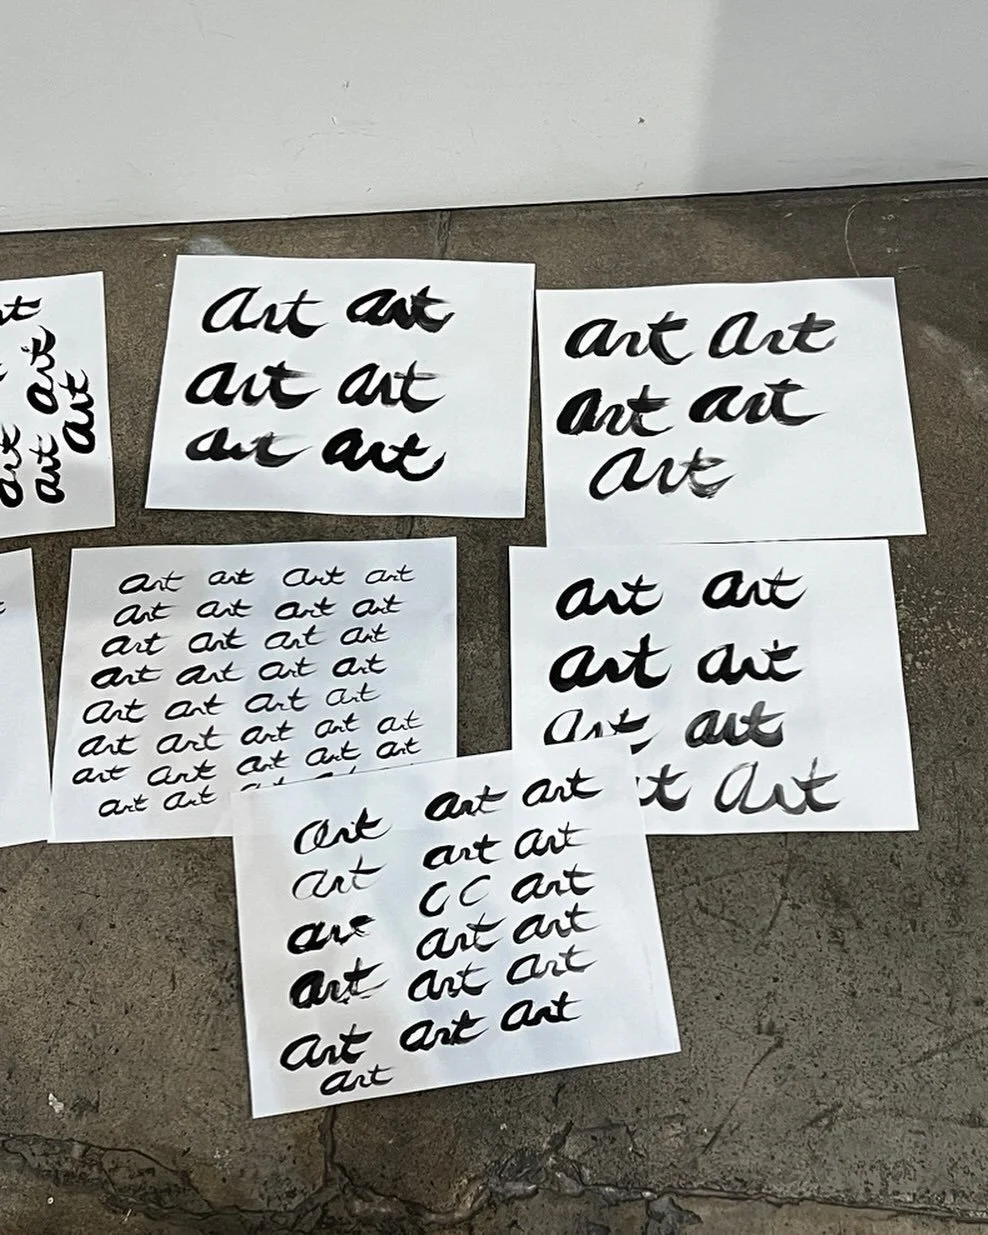 art
art
art
art
art
art
art art
art art
art art
art art
art art
art
art art art art
art art art art
art art art art
art art art art
art art art art
art art art art art
art art art art art
art art
art art
art art
art art
art art
art art art
art art art
art C C art
art art art
art art art
art art art
art